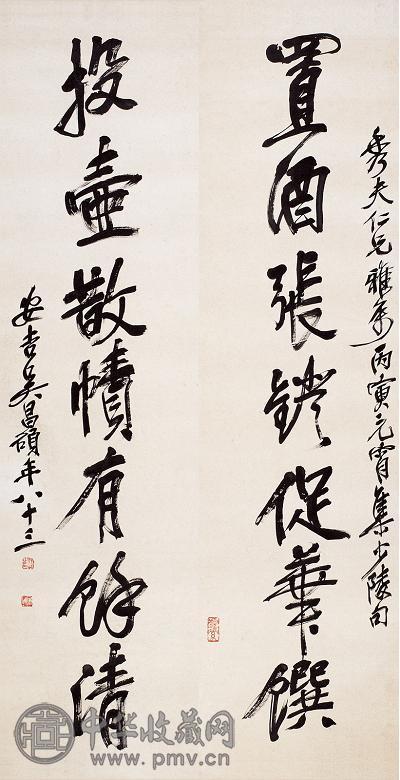 秀夫仁兄雅屬丙寅元宵集少陵句
置酒張鐙促華饌
投壺散幘有餘清
安吉吳昌碩年八十三
中华收藏网
www.pmv.cn